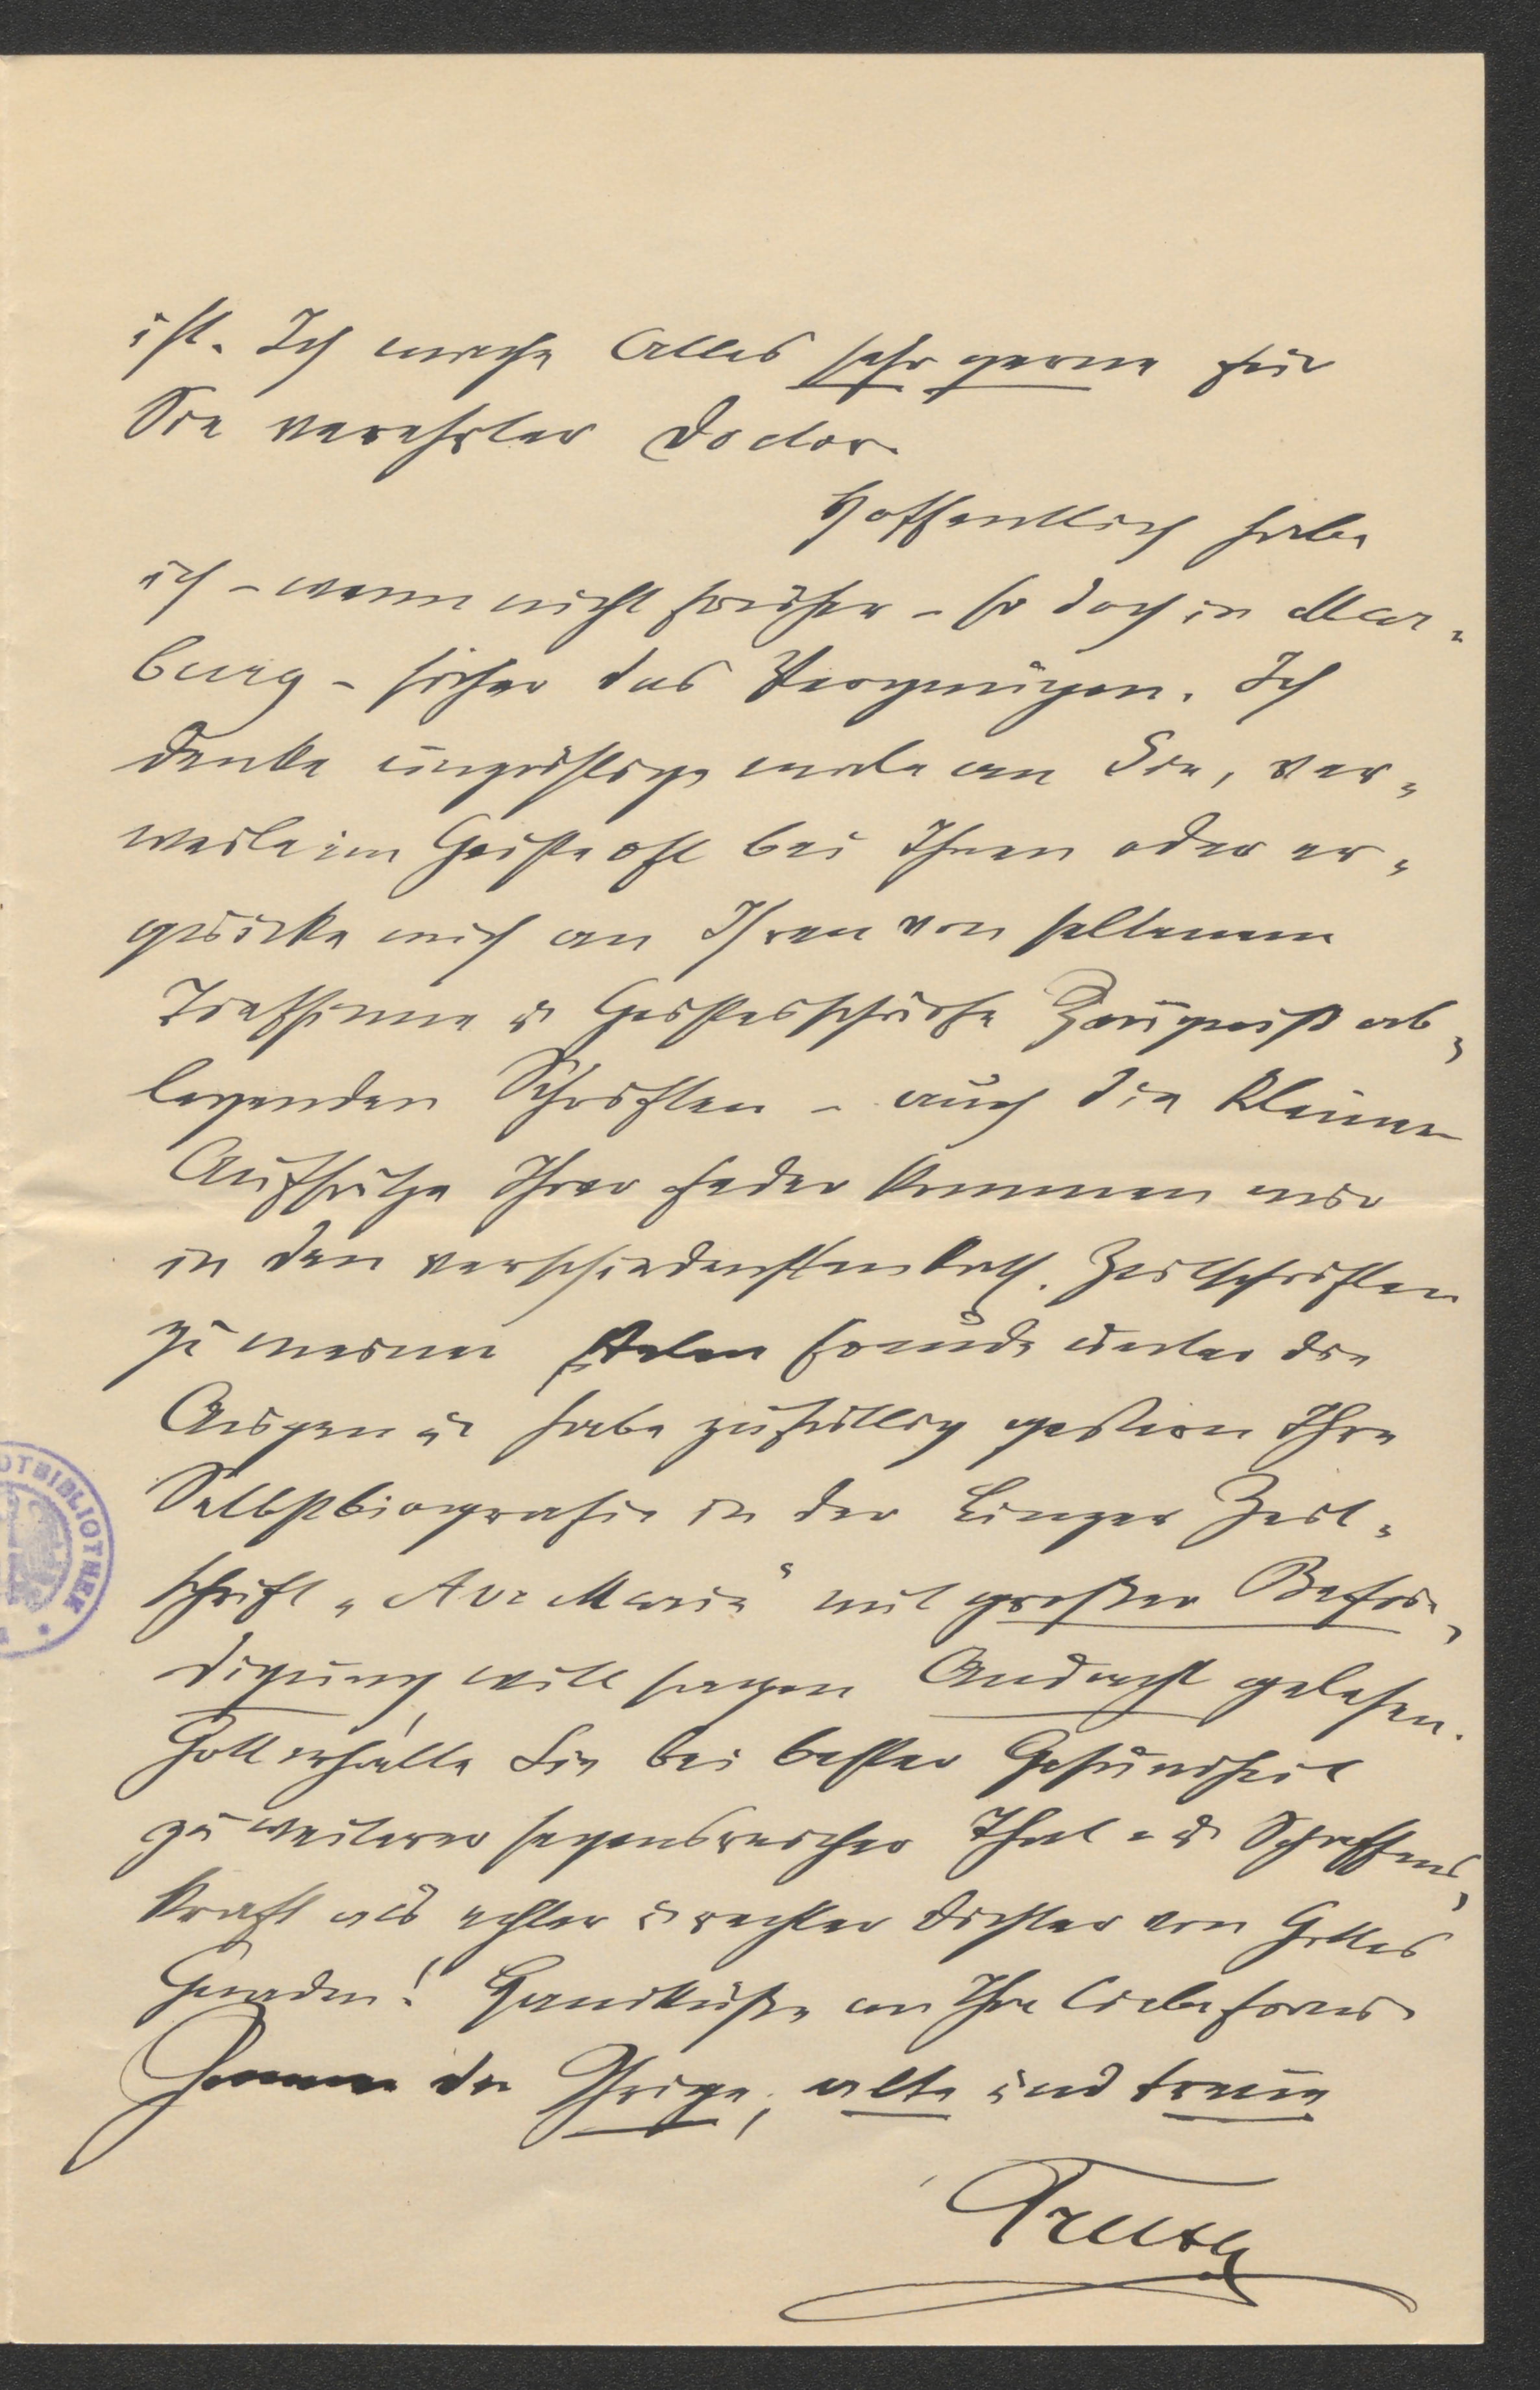 ist. Ich mache Alles sehr gerne für
Sie verehrter Doctor.
Hoffentlich habe
ich – wenn nicht früher – so doch in Mar-
burg – sicher das Vergnügen. Ich
denke ungezählige male an Sie, ver-
weile im Geiste oft bei Ihnen oder er-
quicke mich an Ihren von seltenem
Tiefsinne u Geistesschärfe Zeugniß ab-
legenden Schriften – auch die kleinen
Aufsätze Ihrer Feder kommen mir
in den verschiedensten kath. Zeitschriften
zu meiner Freude unter die
Augen u habe zufällig gestern Ihre
Selbstbiografie in der Linzer Zeit-
schrift „Ave Maria" mit großer Befrie-
digung, will sagen Andacht gelesen.
Gott erhalte Sie bei bester Gesundheit
zu weiterer segensreicher That- u Schaffens-
kraft als echter u rechter Dichter von Gottes
Gnaden! Handküße an Ihre liebe Frau
der Ihrige, alte und treue